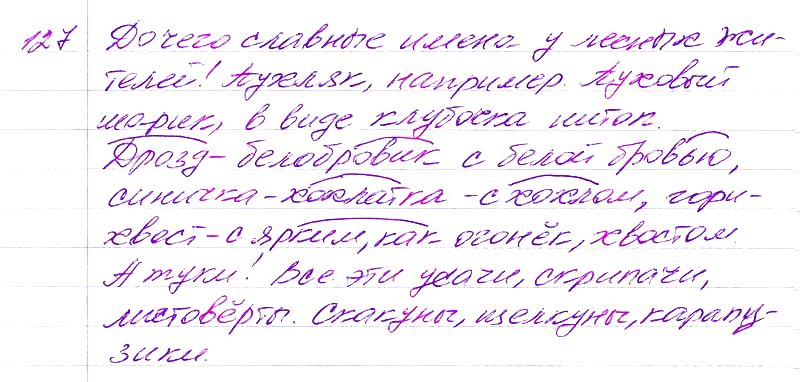 127 До чего славные имена у лесных жи-
телей! Пухляк, например. Пуховый
шарик, в виде клубочка ниток.
Дрозд-белобровик с белой бровью,
синичка-хохлатка - с хохлом, гори-
хвост - с ярким, как огонёк, хвостом.
А жуки! Все эти усачи, скрипачи,
листовёрты. Скакуны, щелкуны, карапу-
зики.